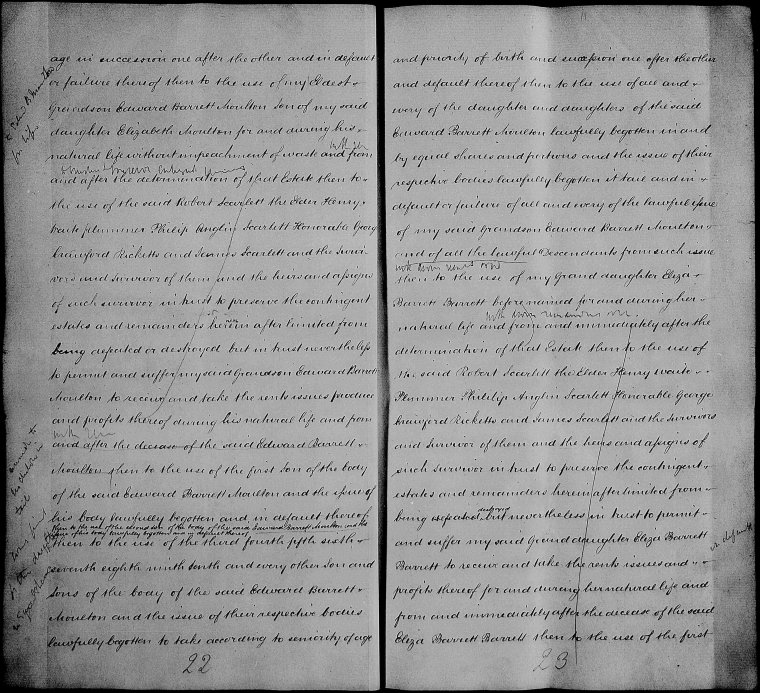 age in succession one after the other and in default
or failure thereof then to the use of my Eldest
Grandson Edward Barrett Moulton Son of my said
daughter Elizabeth Moulton for and during his
natural life without impeachment of waste and from
and after the determination of that Estate then to
the use of the said Robert Scarlett the Elder Henry
Waite Plummer Philip Anglin Scarlett Honorable George
Crawford Ricketts and James Scarlett and the Survi-
vors and Survivor of them and the heirs and assigns
of such survivor in trust to preserve the contingent
estates and remainders herein after limited from
being defeated or destroyed but in trust nevertheless
to permit and suffer my said Grandson Edward Barrett
Moulton to receive and take the rents issues produce
and profits thereof during his natural life and from
and after the decease of the said Edward Barrett
Moulton then to the use of the first Son of the body
of the said Edward Barrett Moulton and the issue of
his body lawfully begotten and in default thereof
then to the use of the second son of the body of the said Edward Barrett Moulton and the
issue of his body lawfully begotten and in default thereof
then to the use of the third fourth fifth sixth
seventh eighth ninth tenth and every other Son and
Sons of the body of the said Edward Barrett
Moulton and the issue of their respective bodies
lawfully begotten to take according to seniority of age
22
and priority of birth and succession one after the other
and default thereof then to the use of all and
every of the daughter and daughters of the said
Edward Barrett Moulton lawfully begotten in and
by equal shares and portions and the issue of their
respective bodies lawfully begotten it tail and in
default or failure of all and every of the lawful issue
of my said Grandson Edward Barrett Moulton
and of all the lawful Descendants from such issue
then to the use of my Grand daughter Eliza
Barrett Barrett before named for and during her
natural life and from and immediately after the
determination of that Estate then to the use of
the said Robert Scarlett the Elder Henry Waite
Plummer Phillip Anglin Scarlett Honorable George
Crawford Ricketts and James Scarlett and the Survivors
and Survivor of them and the heirs and assigns of
such survivor in trust to preserve the contingent
estates and remainders herein after limited from
destroyed
being but nevertheless in trust to permit
and suffer my said Grand daughter Eliza Barrett
Barrett to receive and take the rents issues and
profits thereof for and during her natural life and
from and immediately after the decease of the said
Eliza Barrett Barrett then to the use of the first
23